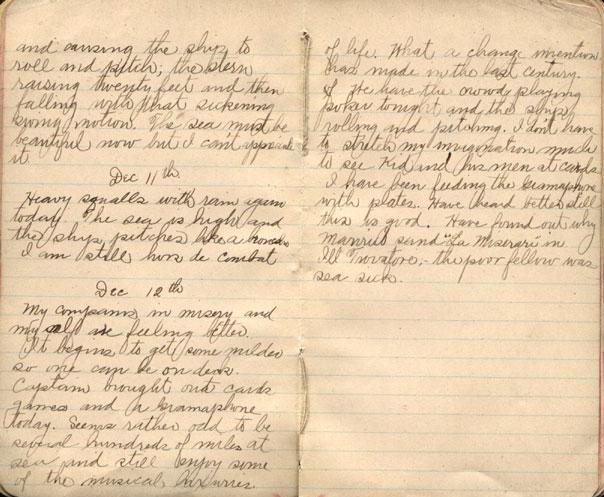 and causing the ship to
roll and pitch; the stern
raising twenty feet and then
falling with that sickening
swing motion. The sea must be
beautiful now but I cant appreciate
it
Dec 11th
Heavy squalls with rain again
today. The sea is high and
the ship pitches like a bronco
I am still hors de combat
Dec 12th
My companions in misery and
my self are feeling better.
It begins to get some milder
so one can be on deck.
Captain brought out cards
games and a gramaphone
today. Seems rather odd to be
several hundreds of miles at
sea and still enjoy some
of the musical luxuries
of life. What a change invention
has made in the last century.
We have the crowd playing
poker tonight and the ship
rolling and pitching. I dont have
to stretch my imagination much
to see Kid and his men at cards.
I have been feeding the gramaphone
with plates. Have heard better still
this is good. Have found out why
Manrico sand "La Miserari" in
Ill Trovatore, - the poor fellow was
sea sick.